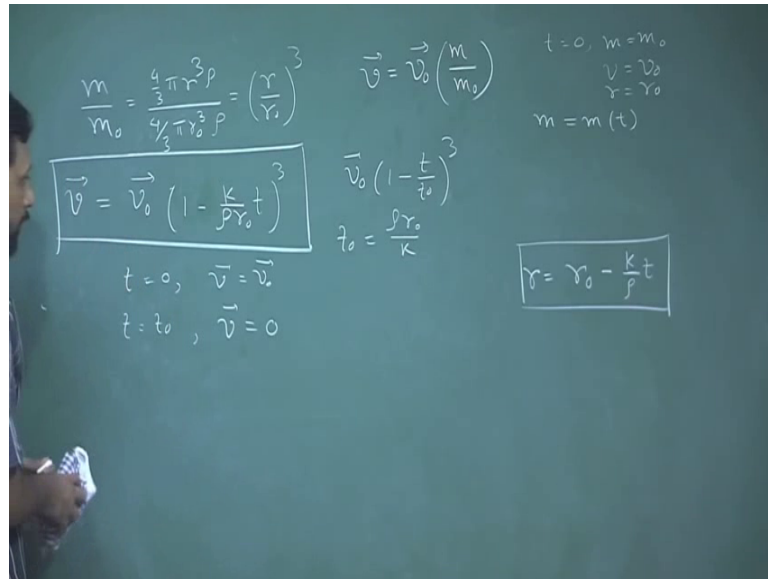 m/m₀ = (4/3 π r³ ρ)/(4/3 π r₀³ ρ) = (r/r₀)³
v⃗ = v⃗₀ (m/m₀)
t = 0, m = m₀
v = v₀
r = r₀
m = m(t)
v⃗ = v⃗₀ (1 - k/(ρr₀) t)³
v̄₀ (1 - t/t₀)³
t₀ = ρr₀/k
r = r₀ - k/ρ t
t = 0, v̄ = v̄₀
t = t₀, v⃗ = 0